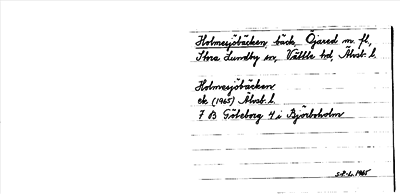 Holmesjöbäcken, bäck, Öjared m. fl,
Stora Lundby sn, Vättle hd, Älvsb. l.
Holmesjöbäcken
ek (1965) Älvsb. l.
7 B Göteborg 4 i Björboholm
S.P.L. 1965